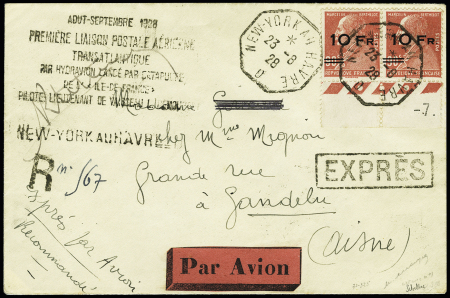 AOUT-SEPTEMBRE 1928
PREMIÈRE LIAISON POSTALE AÉRIENNE
TRANSATLANTIQUE
PAR HYDRAVION LANCÉ PAR CATAPULTE
DE L'"ILE-DE-FRANCE"
PILOTE: LIEUTENANT DE VAISSEAU L. DEMOUGEOT
NEW-YORK AU HAVRE D
23-8
28
10 Fr.
10 Fr.
REPUBLIQUE FRANÇAISE
-7.
NEW-YORK AU HAVRE
chez Mme Mignon
R n° 567
Grande rue
EXPRÈS
à Gandelu
(Aisne)
exprès par Avion
Recommandé
Par Avion